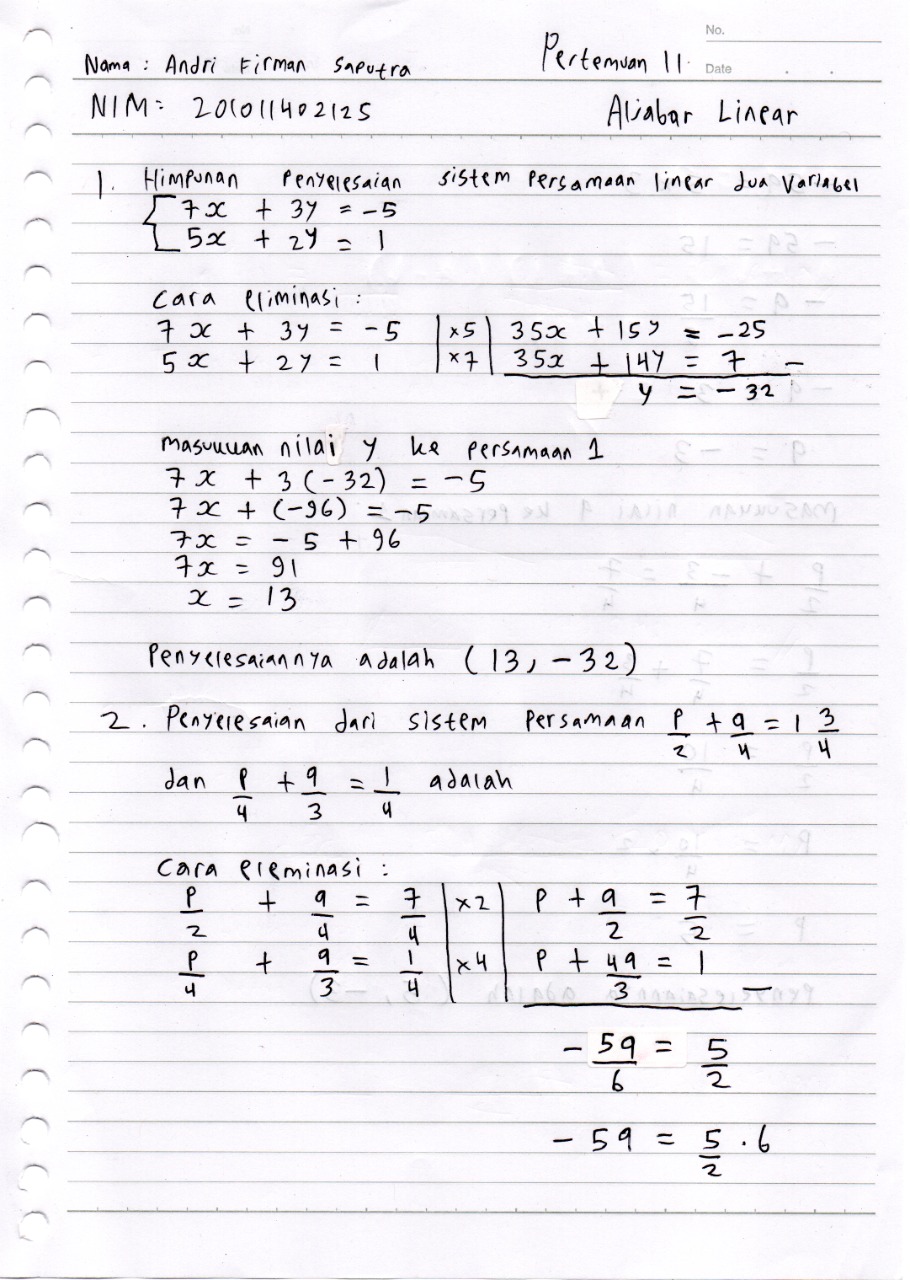 No.
Nama : Andri Firman Saputra Pertemuan 11 Date
NIM : 201011402125 Aljabar Linear
1. Himpunan Penyelesaian sistem persamaan linear dua variabel
7x + 3y = -5
5x + 2y = 1
Cara eliminasi :
7x + 3y = -5 | x5 | 35x + 15y = -25
5x + 2y = 1 | x7 | 35x + 14y = 7 –
y = -32
masukkan nilai y ke persamaan 1
7x + 3(-32) = -5
7x + (-96) = -5
7x = -5 + 96
7x = 91
x = 13
Penyelesaiannya adalah (13, -32)
2. Penyelesaian dari sistem persamaan p/2 + q/4 = 1 3/4
dan p/4 + q/3 = 1/4 adalah
Cara eleminasi :
p/2 + q/4 = 7/4 | x2 | p + q/2 = 7/2
p/4 + q/3 = 1/4 | x4 | p + 4q/3 = 1 –
- 5q/6 = 5/2
- 5q = 5/2 . 6